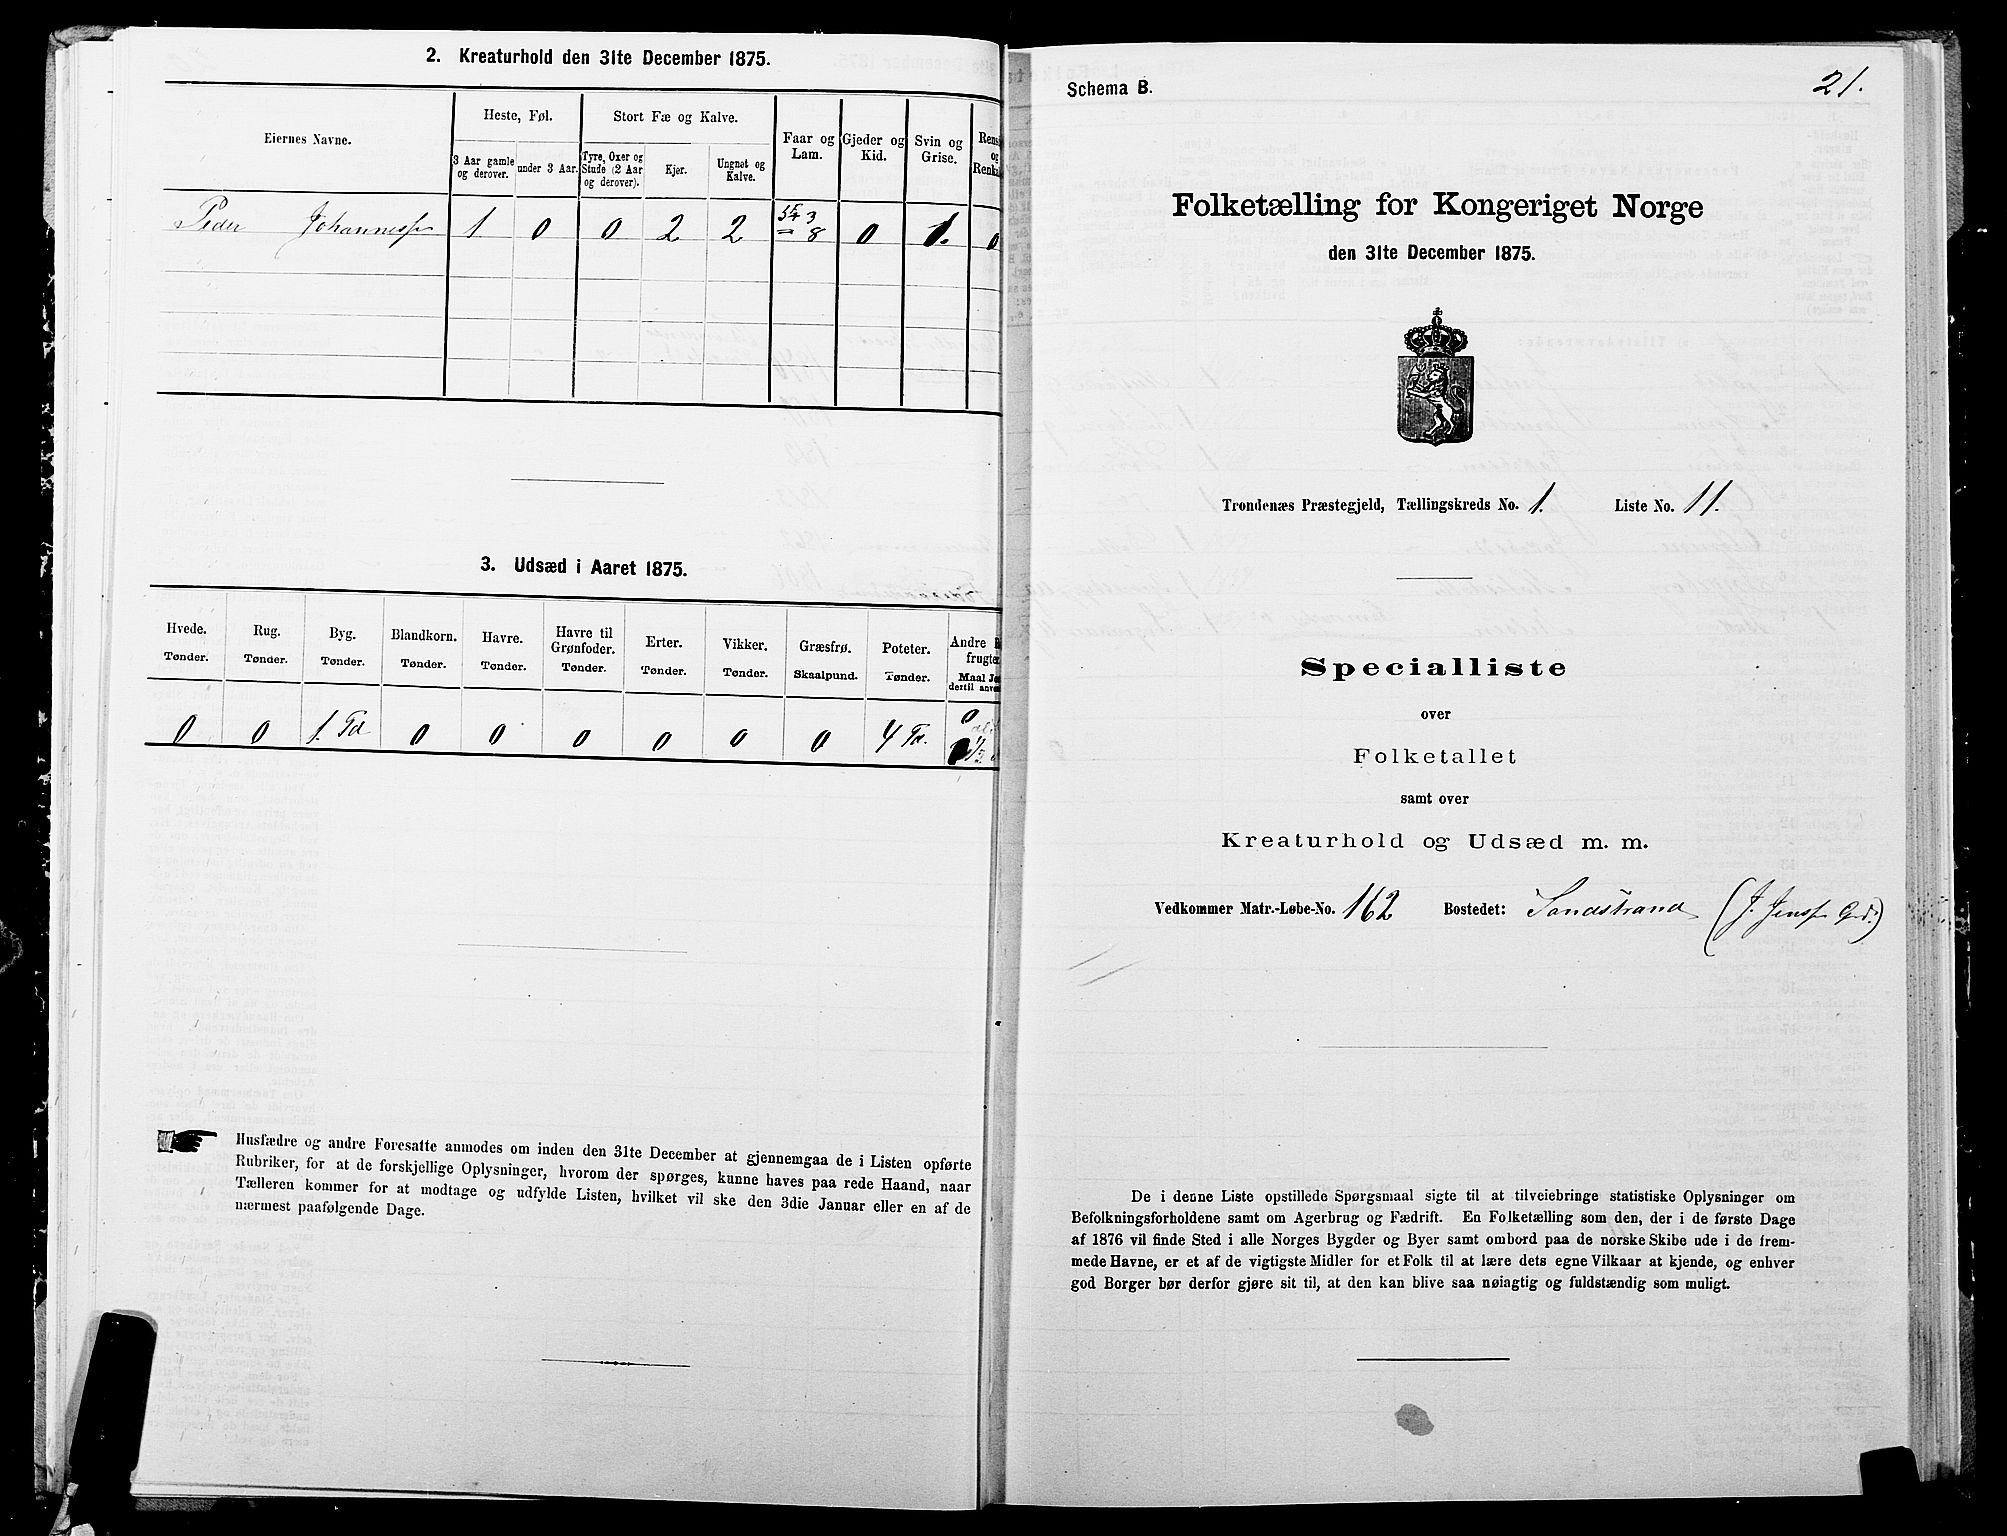 2. Kreaturhold den 31te December 1875.
Eiernes Navne.
Heste, Føl.
Stort Fæ og Kalve.
Faar og Lam.
Gjeder og Kid.
Svin og Grise.
3 Aar gamle og derover.
under 3 Aar.
Tyre, Oxer og Stude (2 Aar og derover).
Kjer.
Ungnøt og Kalve.
Peder Johannesse 1 0 0 2 2 8 0 1. 0
3. Udsæd i Aaret 1875.
Hvede. Rug. Byg. Blandkorn. Havre. Havre til Grønfoder. Erter. Vikker. Græsfrø. Poteter. Andre
Tønder. Tønder. Tønder. Tønder. Tønder. Tønder. Tønder. Tønder. Skaalpund. Tønder. Maal
dertil
0 0 1. Td 0 0 0 0 0 0 4 Td. 0
Husfædre og andre Foresatte anmodes om inden den 31te December at gjennemgaa de i Listen opførte
Rubriker, for at de forskjellige Oplysninger, hvorom der spørges, kunne haves paa rede Haand, naar
Tælleren kommer for at modtage og udfylde Listen, hvilket vil ske den 3die Januar eller en af de
nærmest paafølgende Dage.
Schema B.
21.
Folketælling for Kongeriget Norge
den 31te December 1875.
Trondenæs Præstegjeld, Tællingskreds No. 1. Liste No. 11.
Specialliste
over
Folketallet
samt over
Kreaturhold og Udsæd m. m.
Vedkommer Matr.-Løbe-No. 162 Bostedet: Sandstrand (J. Jenss Grd.)
De i denne Liste opstillede Spørgsmaal sigte til at tilveiebringe statistiske Oplysninger om
Befolkningsforholdene samt om Agerbrug og Fædrift. En Folketælling som den, der i de første Dage
af 1876 vil finde Sted i alle Norges Bygder og Byer samt ombord paa de norske Skibe ude i de frem-
mede Havne, er et af de vigtigste Midler for et Folk til at lære dets egne Vilkaar at kjende, og enhver
god Borger bør derfor gjøre sit til, at den kan blive saa nøiagtig og fuldstændig som muligt.